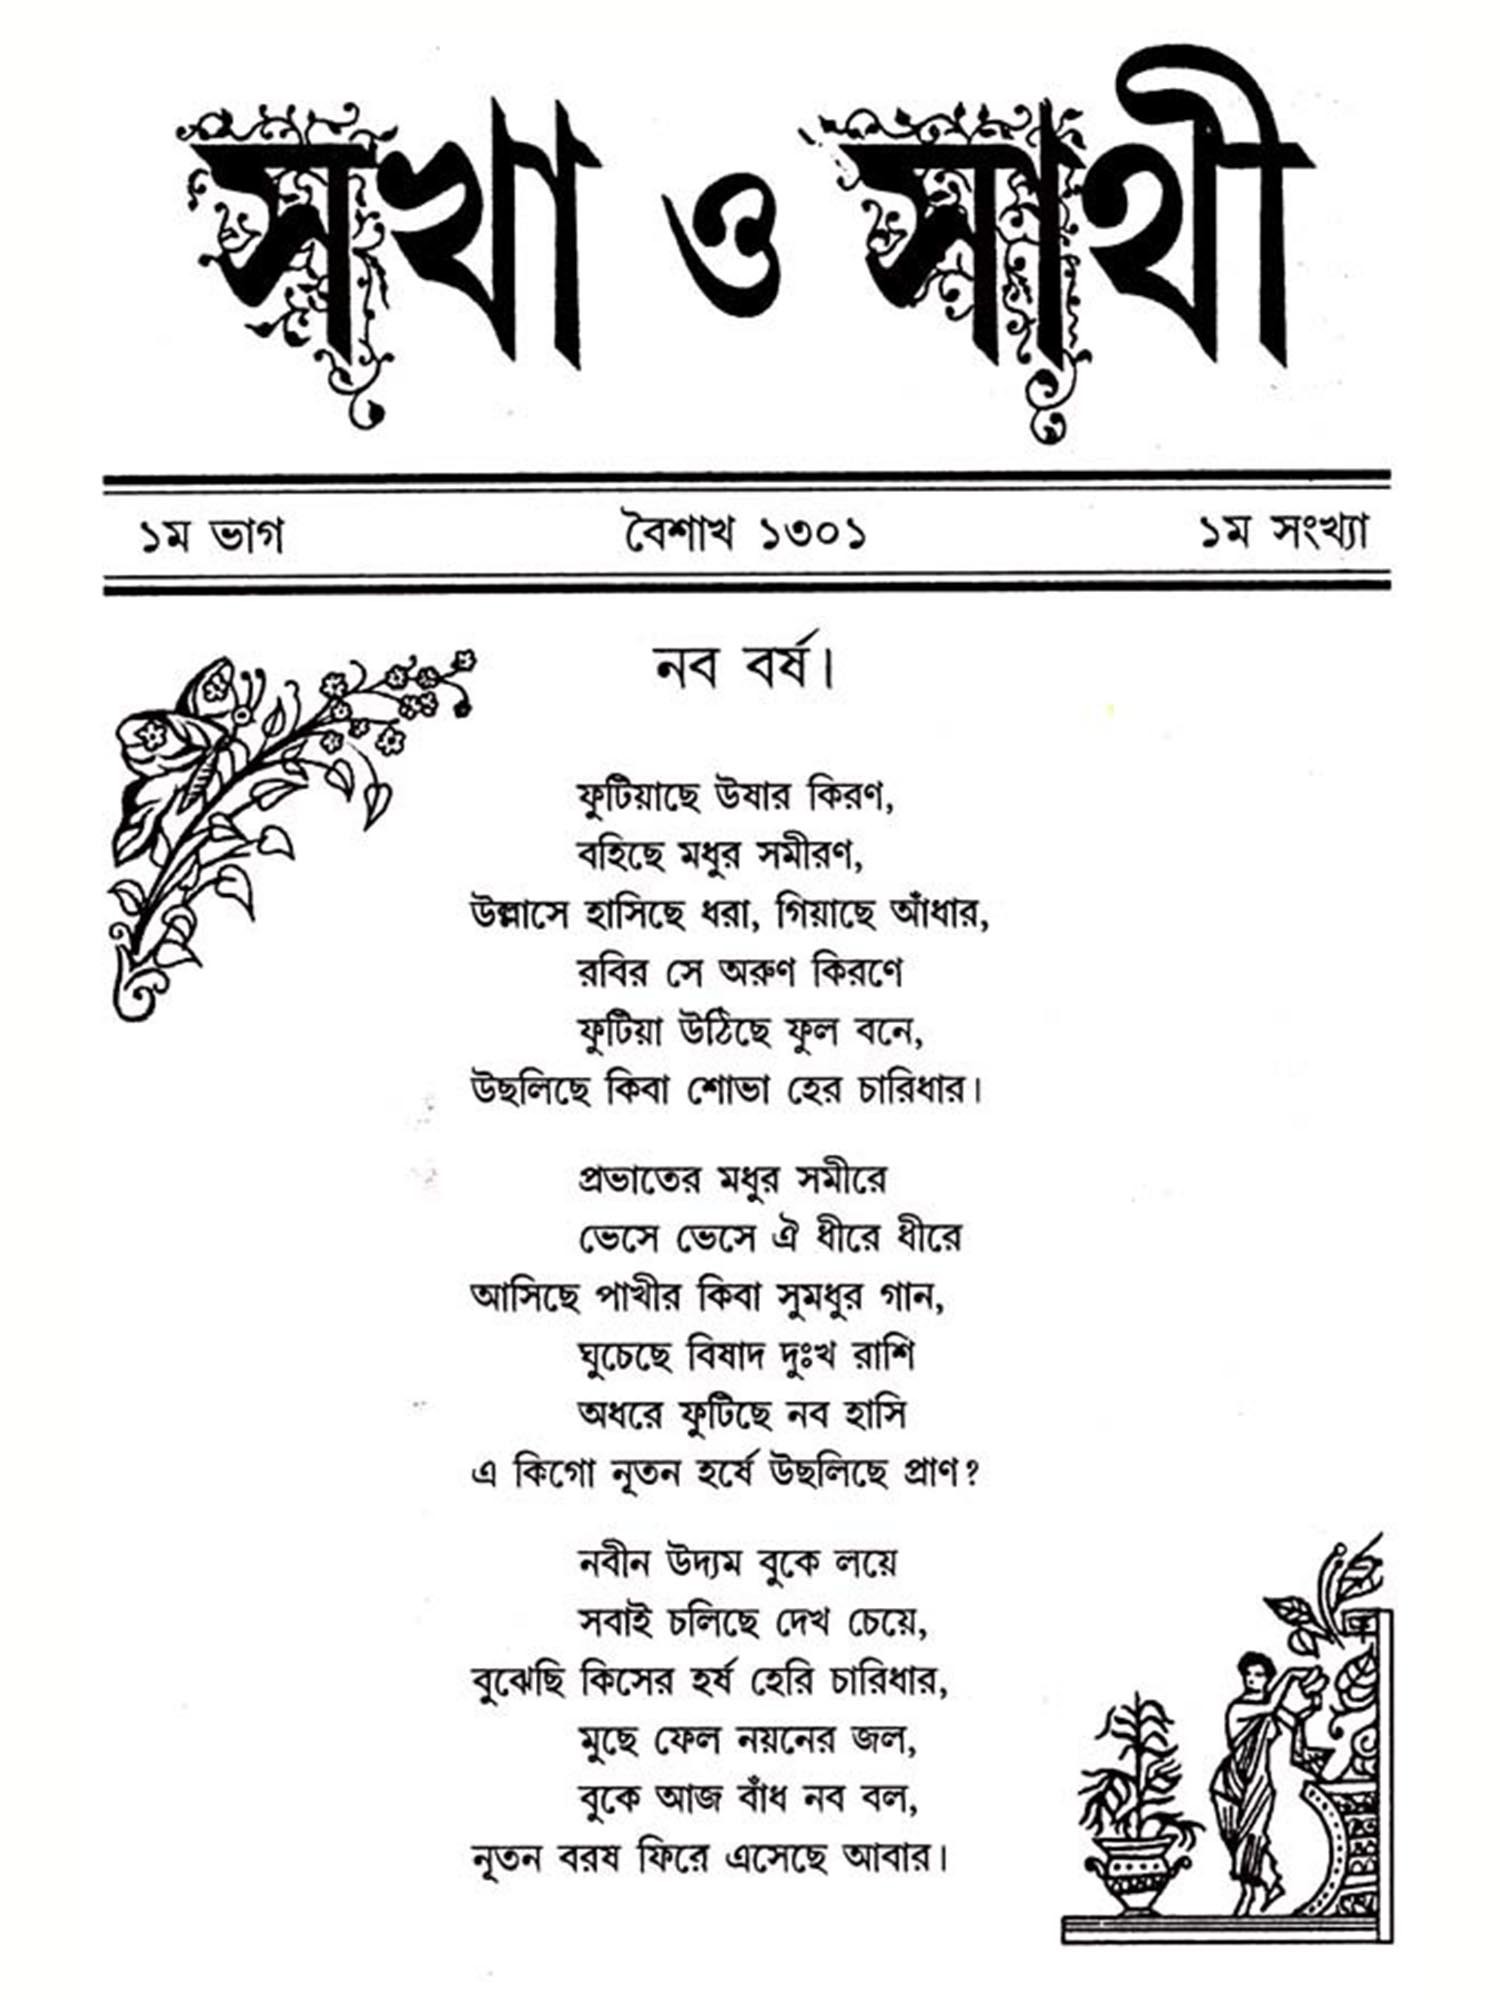 সখা ও সাথী
১ম ভাগ বৈশাখ ১৩০১ ১ম সংখ্যা
নব বর্ষ।
ফুটিয়াছে উষার কিরণ,
বহিছে মধুর সমীরণ,
উল্লাসে হাসিছে ধরা, গিয়াছে আঁধার,
রবির সে অরুণ কিরণে
ফুটিয়া উঠিছে ফুল বনে,
উছলিছে কিবা শোভা হের চারিধার।
প্রভাতের মধুর সমীরে
ভেসে ভেসে ঐ ধীরে ধীরে
আসিছে পাখীর কিবা সুমধুর গান,
ঘুচেছে বিষাদ দুঃখ রাশি
অধরে ফুটিছে নব হাসি
এ কিগো নূতন হর্ষে উছলিছে প্রাণ?
নবীন উদ্যম বুকে লয়ে
সবাই চলিছে দেখ চেয়ে,
বুঝেছি কিসের হর্ষ হেরি চারিধার,
মুছে ফেল নয়নের জল,
বুকে আজ বাঁধ নব বল,
নূতন বরষ ফিরে এসেছে আবার।